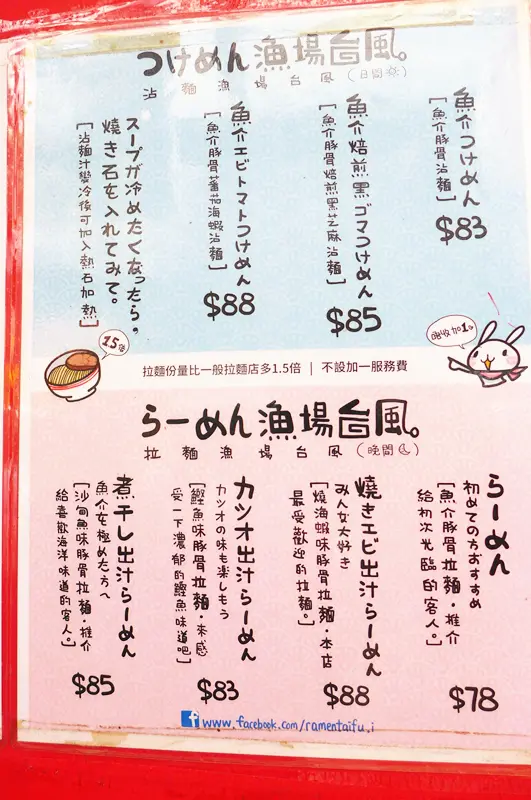 つけめん漁場台風。
沾麵漁場台風(日間)
魚介つけめん
[魚介豚骨沾麵]
$83
魚介焙煎黒ゴマつけめん
[魚介豚骨焙煎黑芝麻沾麵]
$85
魚介エビトマトつけめん
[魚介豚骨蕃茄海蝦沾麵]
$88
スープが冷めたくなったら。
焼き石を入れてみて。
[沾麵汁變冷後可加入熱石加熱]
1.5倍
拉麵份量比一般拉麵店多1.5倍 | 不設加一服務費
唔收加1
らーめん漁場台風。
拉麵漁場台風(晚間)
らーめん
初めての方おすすめ
[魚介豚骨拉麵・推介
給初次光臨的客人。]
$78
焼きエビ出汁らーめん
みんな大好き
[燒海蝦味豚骨拉麵・本店
最受歡迎的拉麵。]
$88
カツオ出汁らーめん
カツオの味も楽しもう
[鰹魚味豚骨拉麵・來感
受一下濃郁的鰹魚味道吧]
$83
煮干し出汁らーめん
魚介を極めた方へ
[沙甸魚味豚骨拉麵・推介
給喜歡海洋味道的客人。]
$85
www.facebook.com/ramentaifu.i